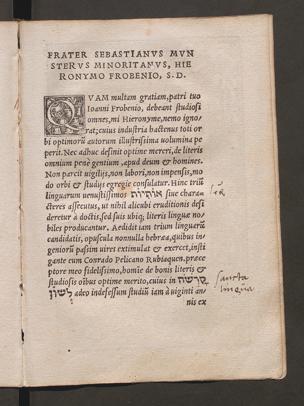 FRATER SEBASTIANVS MVN
STERVS MINORITANVS, HIE
RONYMO FROBENIO, S. D.
QVAM multam gratiam, patri tuo
Ioanni Frobenio, debeant studiosi
omnes, mi Hieronyme, nemo igno-
rat; cuius industria hactenus toti or
bi optimorū autorum illustrissima uolumina pe
perit. Nec adhuc definit optime mereri, de literis
omnium penè gentium, apud deum & homines.
Non parcit uigilijs, non labori, non impensis, mo
do orbi & studijs egregie consulatur. Hinc triū
linguarum uenustissimos אותיות siue charac-
cteres assecutus, ut nihil alicubi eruditionis desi
deretur à doctis, sed suis ubiq; literis linguæ no-
biles producantur. Aedidit iam trium linguarū
candidatis, opuscula nonnulla hebræa, quibus in-
geniorū passim uires extimulat & exercet, insti
gante eum Conrado Pelicano Rubiaquen. præce
ptore meo fidelissimo, homine de bonis literis &
studiosis oībus optime merito, cuius in קדשה
לשון adeo indefessum studiū iam à uiginti an-
nis ex
Sancta
lingua